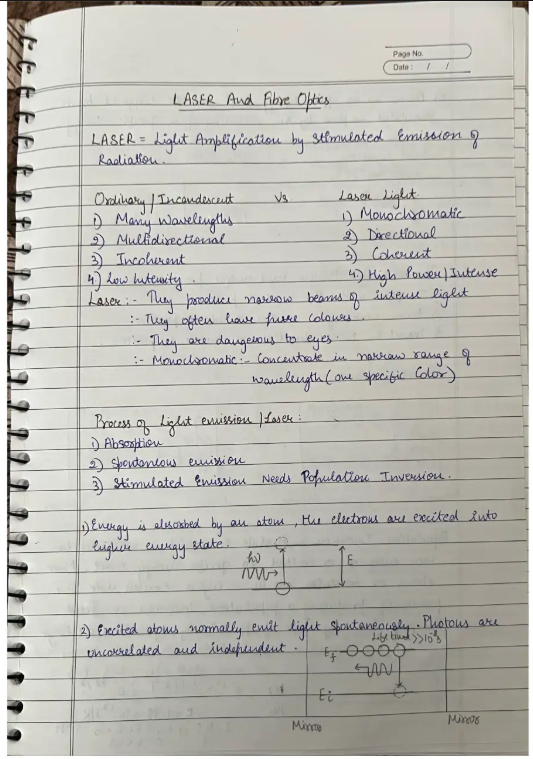 Page No.
Date : / /
LASER And Fibre Optics
LASER = Light Amplification by Stimulated Emission of
Radiation.
Ordinary / Incandescent Vs Laser Light
1) Many Wavelengths 1) Monochromatic
2) Multidirectional 2) Directional
3) Incoherent 3) Coherent
4) Low Intensity. 4) High Power / Intense
Laser :- They produce narrow beams of intense light
:- They often have pure colours.
:- They are dangerous to eyes.
:- Monochromatic :- Concentrate in narrow range of
wavelength (one specific Color)
Process of Light emission / Laser :
1) Absorption
2) Spontaneous emission
3) Stimulated Emission Needs Population Inversion.
1) Energy is absorbed by an atom, the electrons are excited into
higher energy state.
hυ E
2) Excited atoms normally emit light spontaneously. Photons are
uncorrelated and independent.
>>10⁻⁸s
Ef
Ei
Mirror Mirror